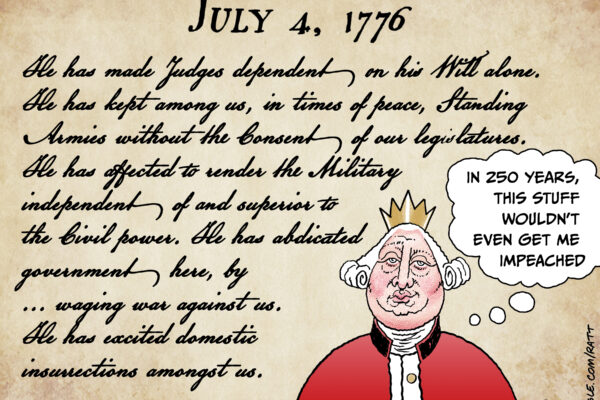 JULY 4, 1776
He has made Judges dependent on his Will alone.
He has kept among us, in times of peace, Standing
Armies without the Consent of our legislatures.
He has affected to render the Military
independent of and superior to
the Civil power. He has abdicated
government here, by
... waging war against us.
He has excited domestic
insurrections amongst us.
IN 250 YEARS,
THIS STUFF
WOULDN'T
EVEN GET ME
IMPEACHED
LE.COM/RATT